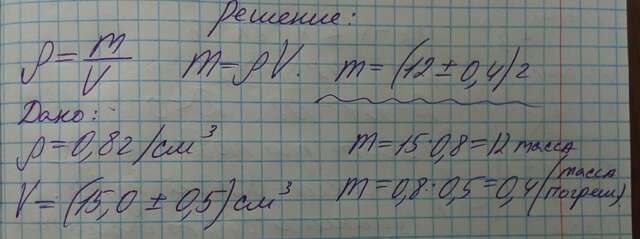 Решение:
ρ = m/V m = ρV. m = (12 ± 0,4) г
Дано:
ρ = 0,8 г/см³ m = 15 · 0,8 = 12 масса
V = (15,0 ± 0,5) см³ m = 0,8 · 0,5 = 0,4 (масса погреш)